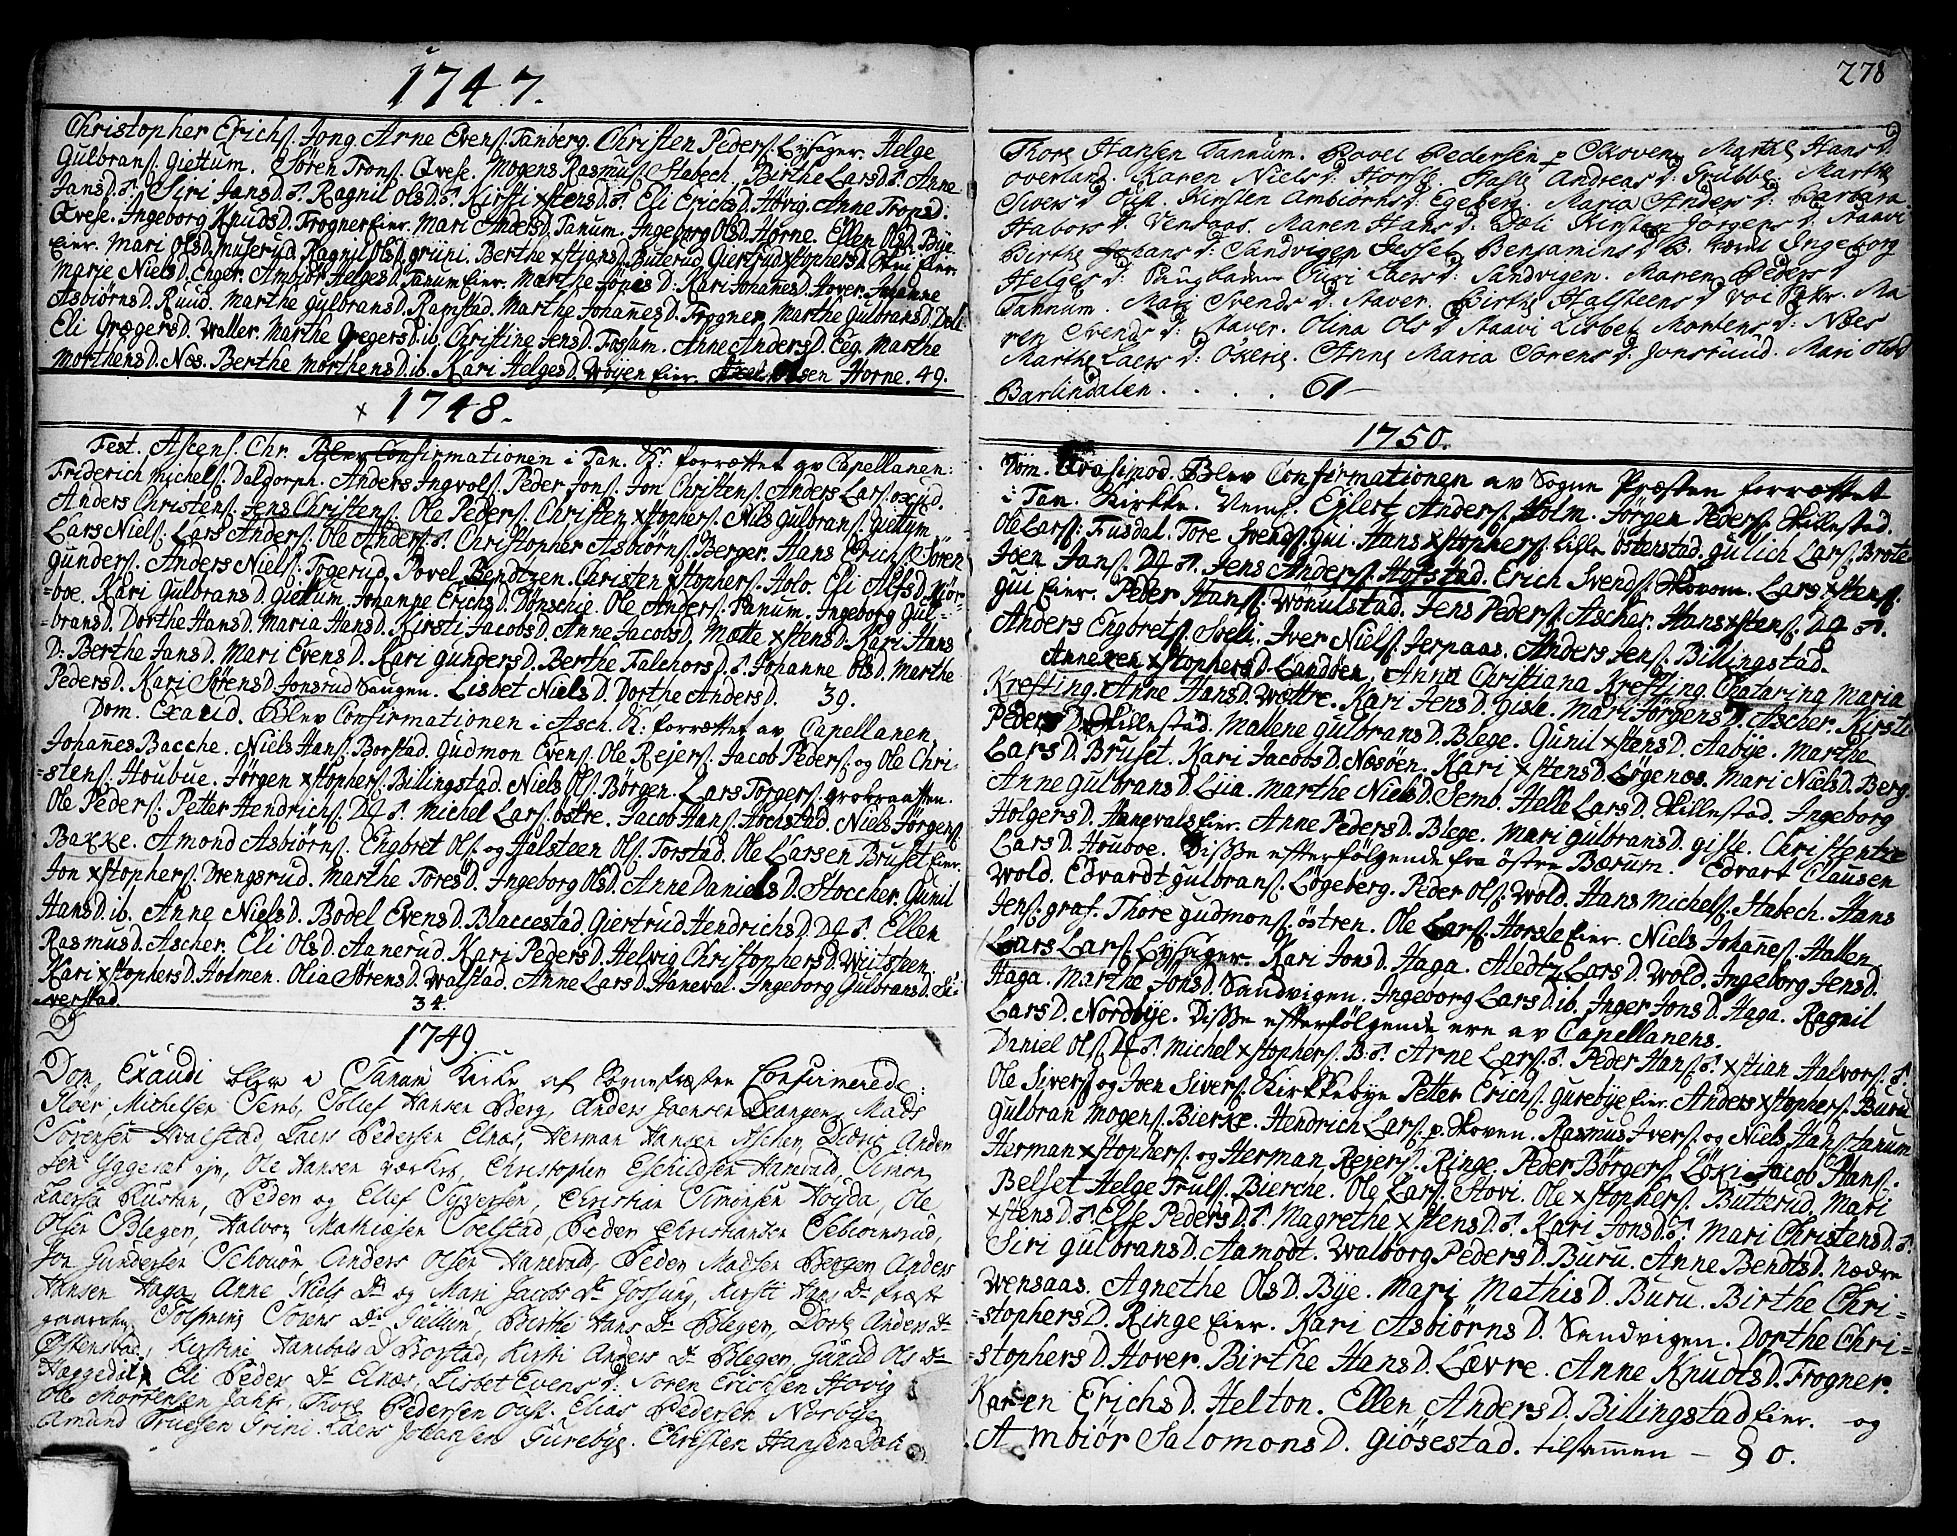 1747.
Christopher Erichs. Jong. Arne Evens. Tanberg. Christen Peders. Lysager. Helge
Gulbrans. Giettum. Sören Trons. Qvese. Mogens Rasmus. Stabech. Birthe LarsD. Anne
JansD. Siri JansD. Ragnil OlsD. Kirsti xstensD. Eli ErichsD. Hövig. Anne TronsD.
Qvese. Ingeborg KnudsD. Frogner Eier. Mari AndersD. Tanum. Ingeborg OlsD. Horne. Ellen OlsD. Bye
Eier. Mari OlsD. Muserud. Ragnil OlsD. griini. Berthe xstiansD. Buterud. Giertrud xstophersD. Eier.
Marie NielsD. Enger. Ambiör HelgesD. Tanum Eier. Marthe JonesD. Kari JohanesD. Hover. Susanne
AsbiörnsD. Ruud. Marthe GulbransD. Ramstad. Marthe JohannesD. Frogner. Marthe GulbransD. Dæli
Eli GrægersD. Waller. Marthe GregersD. ib. Christine JensD. Fossum. Anne AndersD. Eeg. Marthe
MorthensD. Næs. Berthe MorthensD. ib. Kari HelgesD. Woyen Eier. Olsen Horne. 49.
x 1748.
Fest. Ascens. Chr. Blev Confirmationen i Tan. K: forrættet av Capellanen.
Friderich Michels. Daldorph. Anders Ingvols. Peder Jons. Jon Christens. Anders Lars. oxud.
Anders Christens. Jens Christens. Ole Peders. Christen xstophers. Nils Gulbrans. Giettum
Lars Niels. Lars Anders. Ole Anders. Christopher Asbiörns. Berger. Hans Erichs. Sören
gunders. Anders Niels. Togerud. Povel Bendtzen. Christen xstophers. Holo. Eli AlfsD. Kiör-
=boe. Kari GulbransD. Giettum. Johanne ErichsD. Dönschie. Ole Anders. Tanum. Ingeborg Gul-
=bransD. Dorthe HansD. Maria HansD. Kirsti JacobsD. Anne JacobsD. Mætte xstensD. Kari Hans
D. Berthe JansD. Mari EvensD. Kari gundersD. Berthe FalchorsD. Johanne OlsD. Marthe
PedersD. Kari SörensD. Jonsrud Haugen. Lisbet NielsD. Dorthe AndersD. 39.
Dom. Exaud. Blev Confirmationen i Asch. K: forrættet av Capellanen.
Johannes Bacche. Niels Hans. Borstad. Gudmon Evens. Ole Rejers. Jacob Peders. og Ole Chri-
=stens. Houbue. Jörgen xstophers. Billingstad. Niels Ols. Börgen. Lars Torgers. grobraatten.
Ole Peders. Petter Hendrichs. D4 Michel Lars. östre. Jacob Hans. Hochstad. Niels Jörgens.
Baxxe. Amond Asbiörns. Engbret Ols. og Halsteen Ols. Torstad. Ole Larsen Bruset Eier.
Jon xstophers. Drengsrud. Marthe ToresD. Ingeborg OlsD. Anne DanielsD. Stoccher. Gunil
HansD. ib. Anne NielsD. Bodel EvensD. Blaccestad. Giertrud HendrichsD. D4 Ellen
RasmusD. Ascher. Eli OlsD. Aanerud. Kari PedersD. Helvig ChristophersD. Wiilsteen
Kari xstophersD. Holmen. Olia SörensD. Walstad. Anne LarsD. Haneval. Ingeborg GulbransD. Si-
=verstad. 34.
1749
Dom Exaudi blev i Tanum Kirke af Sognepræsten Confirmerede:
Michelsen Semb, Tollef Hansen Berg, Anders Joensen Leangen, Mads
Sörensen Hvalstad, Laers Pedersen Elnæs, Herman Hansen Ascher, Didric Ander
sen Yggeset ejer, Ole Hansen værket, Christopher Eschildsen Hanevald, Simon
Laersen Rustan, Peder og Ellef Syversen, Christian Simonsen Höyda, Ole
Olsen Bleger, Halvor Mathiæsen Solstad, Peder Christiansen Sebiörnsrud,
Jon Gundersen Schouön Anders Olsen Hanevald, Peder Madsen Bergen Anders
Hansen Haga, Anne Niels Dr og Mari Jacobs Dr Fossung, Kirsti Hans Dr Præste
gaarden, Solvning Sörens Dr Giellum, Birthe Hans Dr Bleger, Dorte Anders Dr
Östensbad, Kirstine Hanibals D Borstad, Kirsti Anders Dr Bleger, Gunild Ols Dr
Haggedal, Eli Peders Dr Elnæs, Lisbet Evens D: Soren Erichsen Hovig
Ole Mortensen Jahr, Thore Pedersen Elias Pedersen Norbye
Amund Truelsen Grini. Laers Johansen Gurebye. Christen Hansen Dæli
278
Thore Hansen Tannum. Povel Pedersen p Skoven Marthe Hans D
overland. Karen Niels D Horsle. Andreas D: Grubbe. Marthe
Sivers D Kirsten Ambiörns D: Egeberg. Maria Anders D: Barbara
Habors D: Vensaas. Maren Hans D: Dæli Kirsten Jörgens D: Staavi
Birthe Johans D: Sandvigen Sessel Benjamins D: B. værch Ingeborg
Helges D: Guri Laers D: Sandvigen. Maren Peders D
Tannum. Mari Svends D: Staver. Birthe Halsteens D Ma-
ren Svends D: Staver. Olina Ols D Staavi Lisbet Mortens D: Næes
Marthe Laers D: Ökerie. Anne Maria Sörens D: Jonsruud. Mari OlsD
Barlindalen . . . . 61-
1750.
Dom. Qvasimod. Blev Confirmationen av Sogne Præsten forrættet
i Tan. Kirkke. Eylert Anders. Holm. Jörgen Peders. Skillestad.
Ole Lars. Fusdal. Tore Svends. gui. Hans xstophers. lille östenstad. gulich Lars. Brøte
Joen Jans. D4 Jens Anders. Hofstad. Erich Svends. Skovom. Lars xstens.
gui Eier. Peder Hans. Wönulstad. Jens Peders. Ascher. Hans xstens. D4
Anders Engbrets. Soeli. Iver Niels. Jerpaas. Anders Jens. Billingstad.
Anne xstophersD. Landöen. Anna Christiana Krefting. Chatarina Maria
Krefting. Anne HansD. Wettre. Kari JensD. gisle. Mari JörgensD. Ascher. Kirste
PedersD. Skillestad. Mallene GulbransD. Blege. Gunil xstensD. Aabye. Marthe
LarsD. Bruset. Kari JacobsD. Næsöen. Kari xstensD. Lögenæs. Mari NielsD. Berg.
Anne gulbransD. Liia. Marthe NielsD. Semb. Helle LarsD. Skillestad. Ingeborg
HolgersD. Hanevals Eier. Anne PedersD. Blege. Mari gulbransD. gisle. Christentze
LarsD. Houboe. Disse efterfölgende fra östre Bærum. Edvart Clausen
Wold. Edvardt gulbrans. Lögeberg. Peder Ols. Wold. Hans Michels. Stabech. Hans
Jens. graf. Thore gudmons. östren. Ole Lars. Horsle Eier. Niels Johannes. Hallen
Lars Lars. Lysager. Kari JonsD. Haga. Aledtz LarsD. Wold. Ingeborg JensD.
Haga. Marthe JonsD. Sandvigen. Ingeborg LarsD. ib. Inger JonsD. Haga. Ragnil
LarsD. Nordbye. Disse efterfölgende ere av Capellanens.
Daniel Ols. D4 Michel xstophers. B: Arne Lars. Peder Hans. xstian Halvors.
Ole Sivers. og Joen Sivers. Kirkkebye Petter Erichs. gurebye Eier. Anders xstophers. Buru
Gulbran Mogens. Bierke. Hendrich Lars. p. Skoven. Rasmus Ivers. og Niels Hans. Tanum
Herman xstophers. og Herman Rejers. Ringe. Peder Börgers. Löki. Jacob Hans.
Belset Helge Truls. Bierche. Ole Lars. Stovi. Ole xstophers. Butterud. Mari
xstensD. Else PedersD. Magrethe xstensD. Kari JonsD. Mari ChristensD.
Siri gulbransD. Aamodt. Walborg PedersD. Buru. Anne BendtsD. Nædre
Wensaas. Agnethe OlsD. Bye. Mari MathisD. Buru. Birthe Chri-
=stophersD. Ringe Eier. Kari AsbiörnsD. Sendvigen. Dorthe Chri-
=stophersD. Hover. Birthe HansD. Lævre. Anne KnudtsD. Frogner.
Karen ErichsD. Helton. Ellen AndersD. Billingstad Eier. og
Ambiör SalomonsD. giösestad. tilsammen - 90.